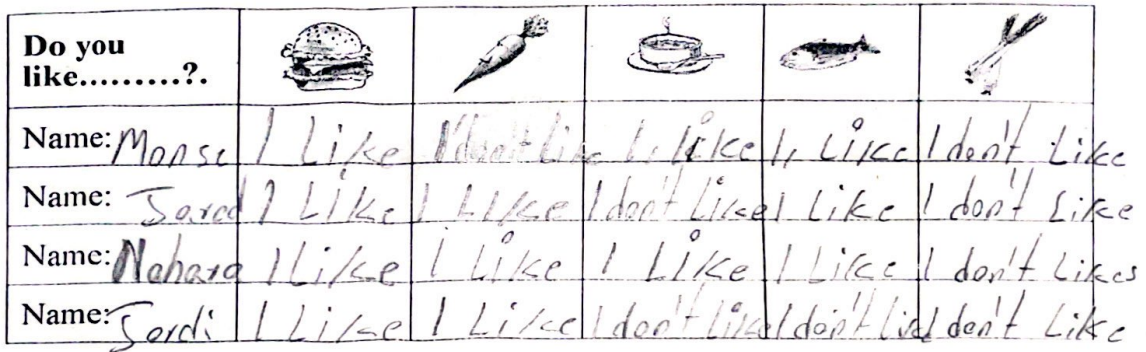 Do you
like.........?.
Name: Monse I Like I don't Like I, like I, Like I don't Like
Name: Jared I Like I Like I don't Like I Like I don't Like
Name: Nahara I Like I Like I Like I Like I don't Likes
Name: Jordi I Like I Like I don't Like I don't Like I don't Like